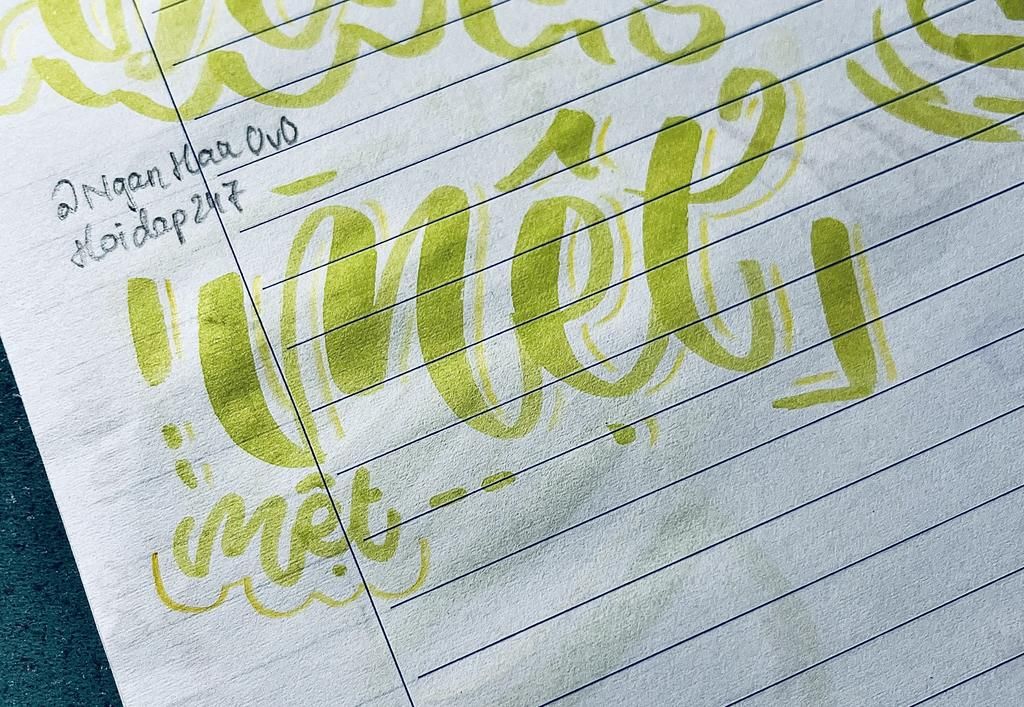 2Ngan Haa OvO
Hoidap247
mệt
mệt